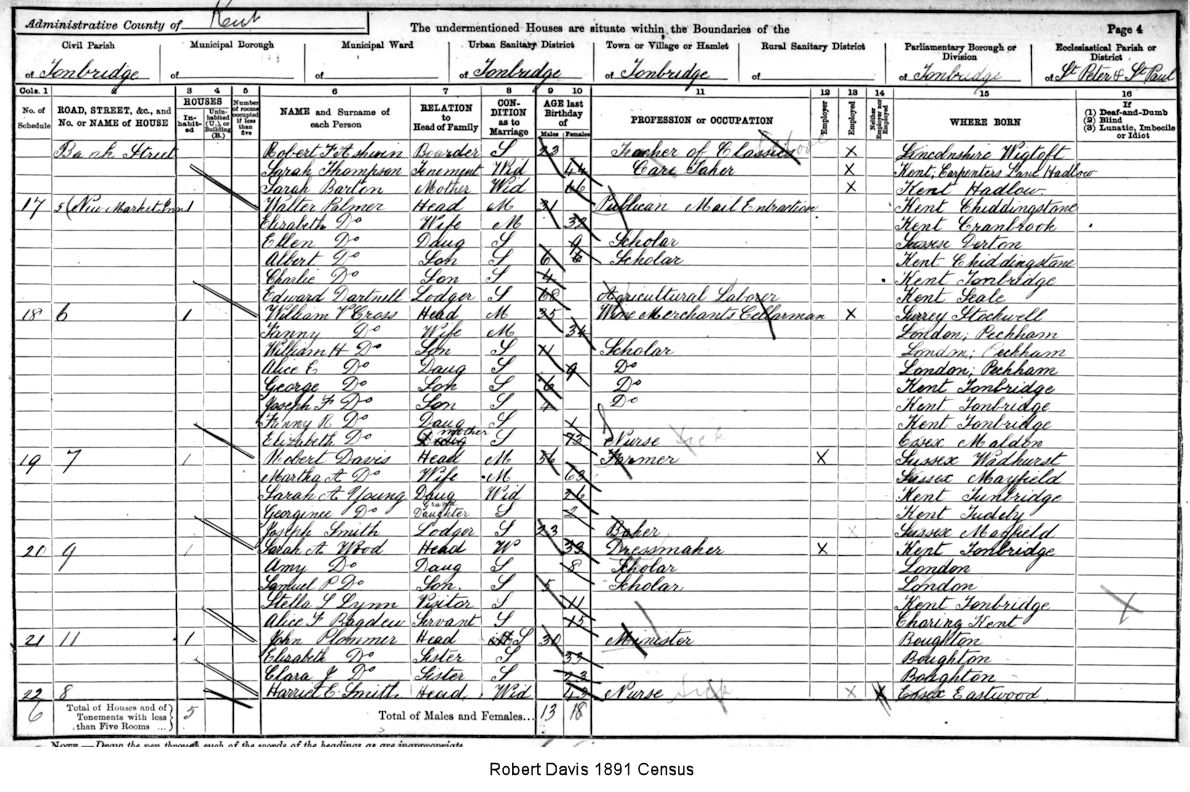 Administrative County of Kent The undermentioned Houses are situate within the Boundaries of the Page 4
Civil Parish Municipal Borough Municipal Ward Urban Sanitary District Town or Village or Hamlet Rural Sanitary District Parliamentary Borough or Division Ecclesiastical Parish or District
of Tonbridge of of of Tonbridge of Tonbridge of of Tonbridge of St Peter & St Paul
Cols. 1 2 3 4 5 6 7 8 9 10 11 12 13 14 15 16
No. of Schedule ROAD, STREET, &c., and No. or NAME of HOUSE HOUSES Inhabited Uninhabited (U.), or Building (B.) Number of rooms occupied if less than five NAME and Surname of each Person RELATION to Head of Family CONDITION as to Marriage AGE last Birthday of Males Females PROFESSION or OCCUPATION Employer Employed Neither Employer nor Employed WHERE BORN If (1) Deaf-and-Dumb (2) Blind (3) Lunatic, Imbecile or Idiot
Bank Street Robert F Ashwin Boarder S 23 Teacher of Classics X Lincolnshire Wigtoft
Sarah Thompson Tenement Wid 44 Care Taker X Kent, Carpenters Lane Hadlow
Sarah Barton Mother Wid 66 X Kent Hadlow
17 5 (New Market Inn 1 Walter Palmer Head M 31 Publican Kent Chiddingstone
Elizabeth Do Wife M 32 Kent Cranbrook
Ellen Do Daug S 9 Scholar Sussex
Albert Do Son S 6 Scholar Kent Chiddingstone
Charlie Do Son S 4 Kent Tonbridge
Edward Dartnell Lodger S 68 Agricultural Laborer Kent Seale
18 6 1 William V Cross Head M 35 Wine Merchants Cellarman X Surrey Stockwell
Fanny Do Wife M 34 London; Peckham
William H Do Son S Scholar London; Peckham
Alice E Do Daug S 9 Do London; Peckham
George Do Son S 6 Do Kent Tonbridge
Joseph F Do Son S 4 Do Kent Tonbridge
Fanny R Do Daug S 1 Kent Tonbridge
Elizabeth Do mother S 73 Nurse Sick Essex Maldon
19 7 1 Robert Davis Head M 56 Farmer X Sussex Wadhurst
Martha A Do Wife M 63 Sussex Mayfield
Sarah A Young Daug Wid 26 Kent Tunbridge
Georginee Do Grand Daughter S 2 Kent Tudely
Joseph Smith Lodger S 23 Baker X Sussex Mayfield
20 9 1 Sarah A Wood Head W 33 Dressmaker X Kent Tonbridge
Amy Do Daug S 8 Scholar London
Samuel P Do Son S 5 Scholar London
Stella L Lynn Visitor S 11 Kent Tonbridge
Alice F Bagdew Servant S 15 Charing Kent
21 11 1 John Plommer Head S 30 Minister Boughton
Elizabeth Do Sister S 33 Boughton
Clara J Do Sister S 23 Boughton
22 8 Harriet E Smith Head Wid 43 Nurse Sick X Essex Eastwood
6 Total of Houses and of Tenements with less than Five Rooms ... 5 Total of Males and Females... 13 18
NOTE.—Draw the pen through such of the words of the headings as are inappropriate.
Robert Davis 1891 Census